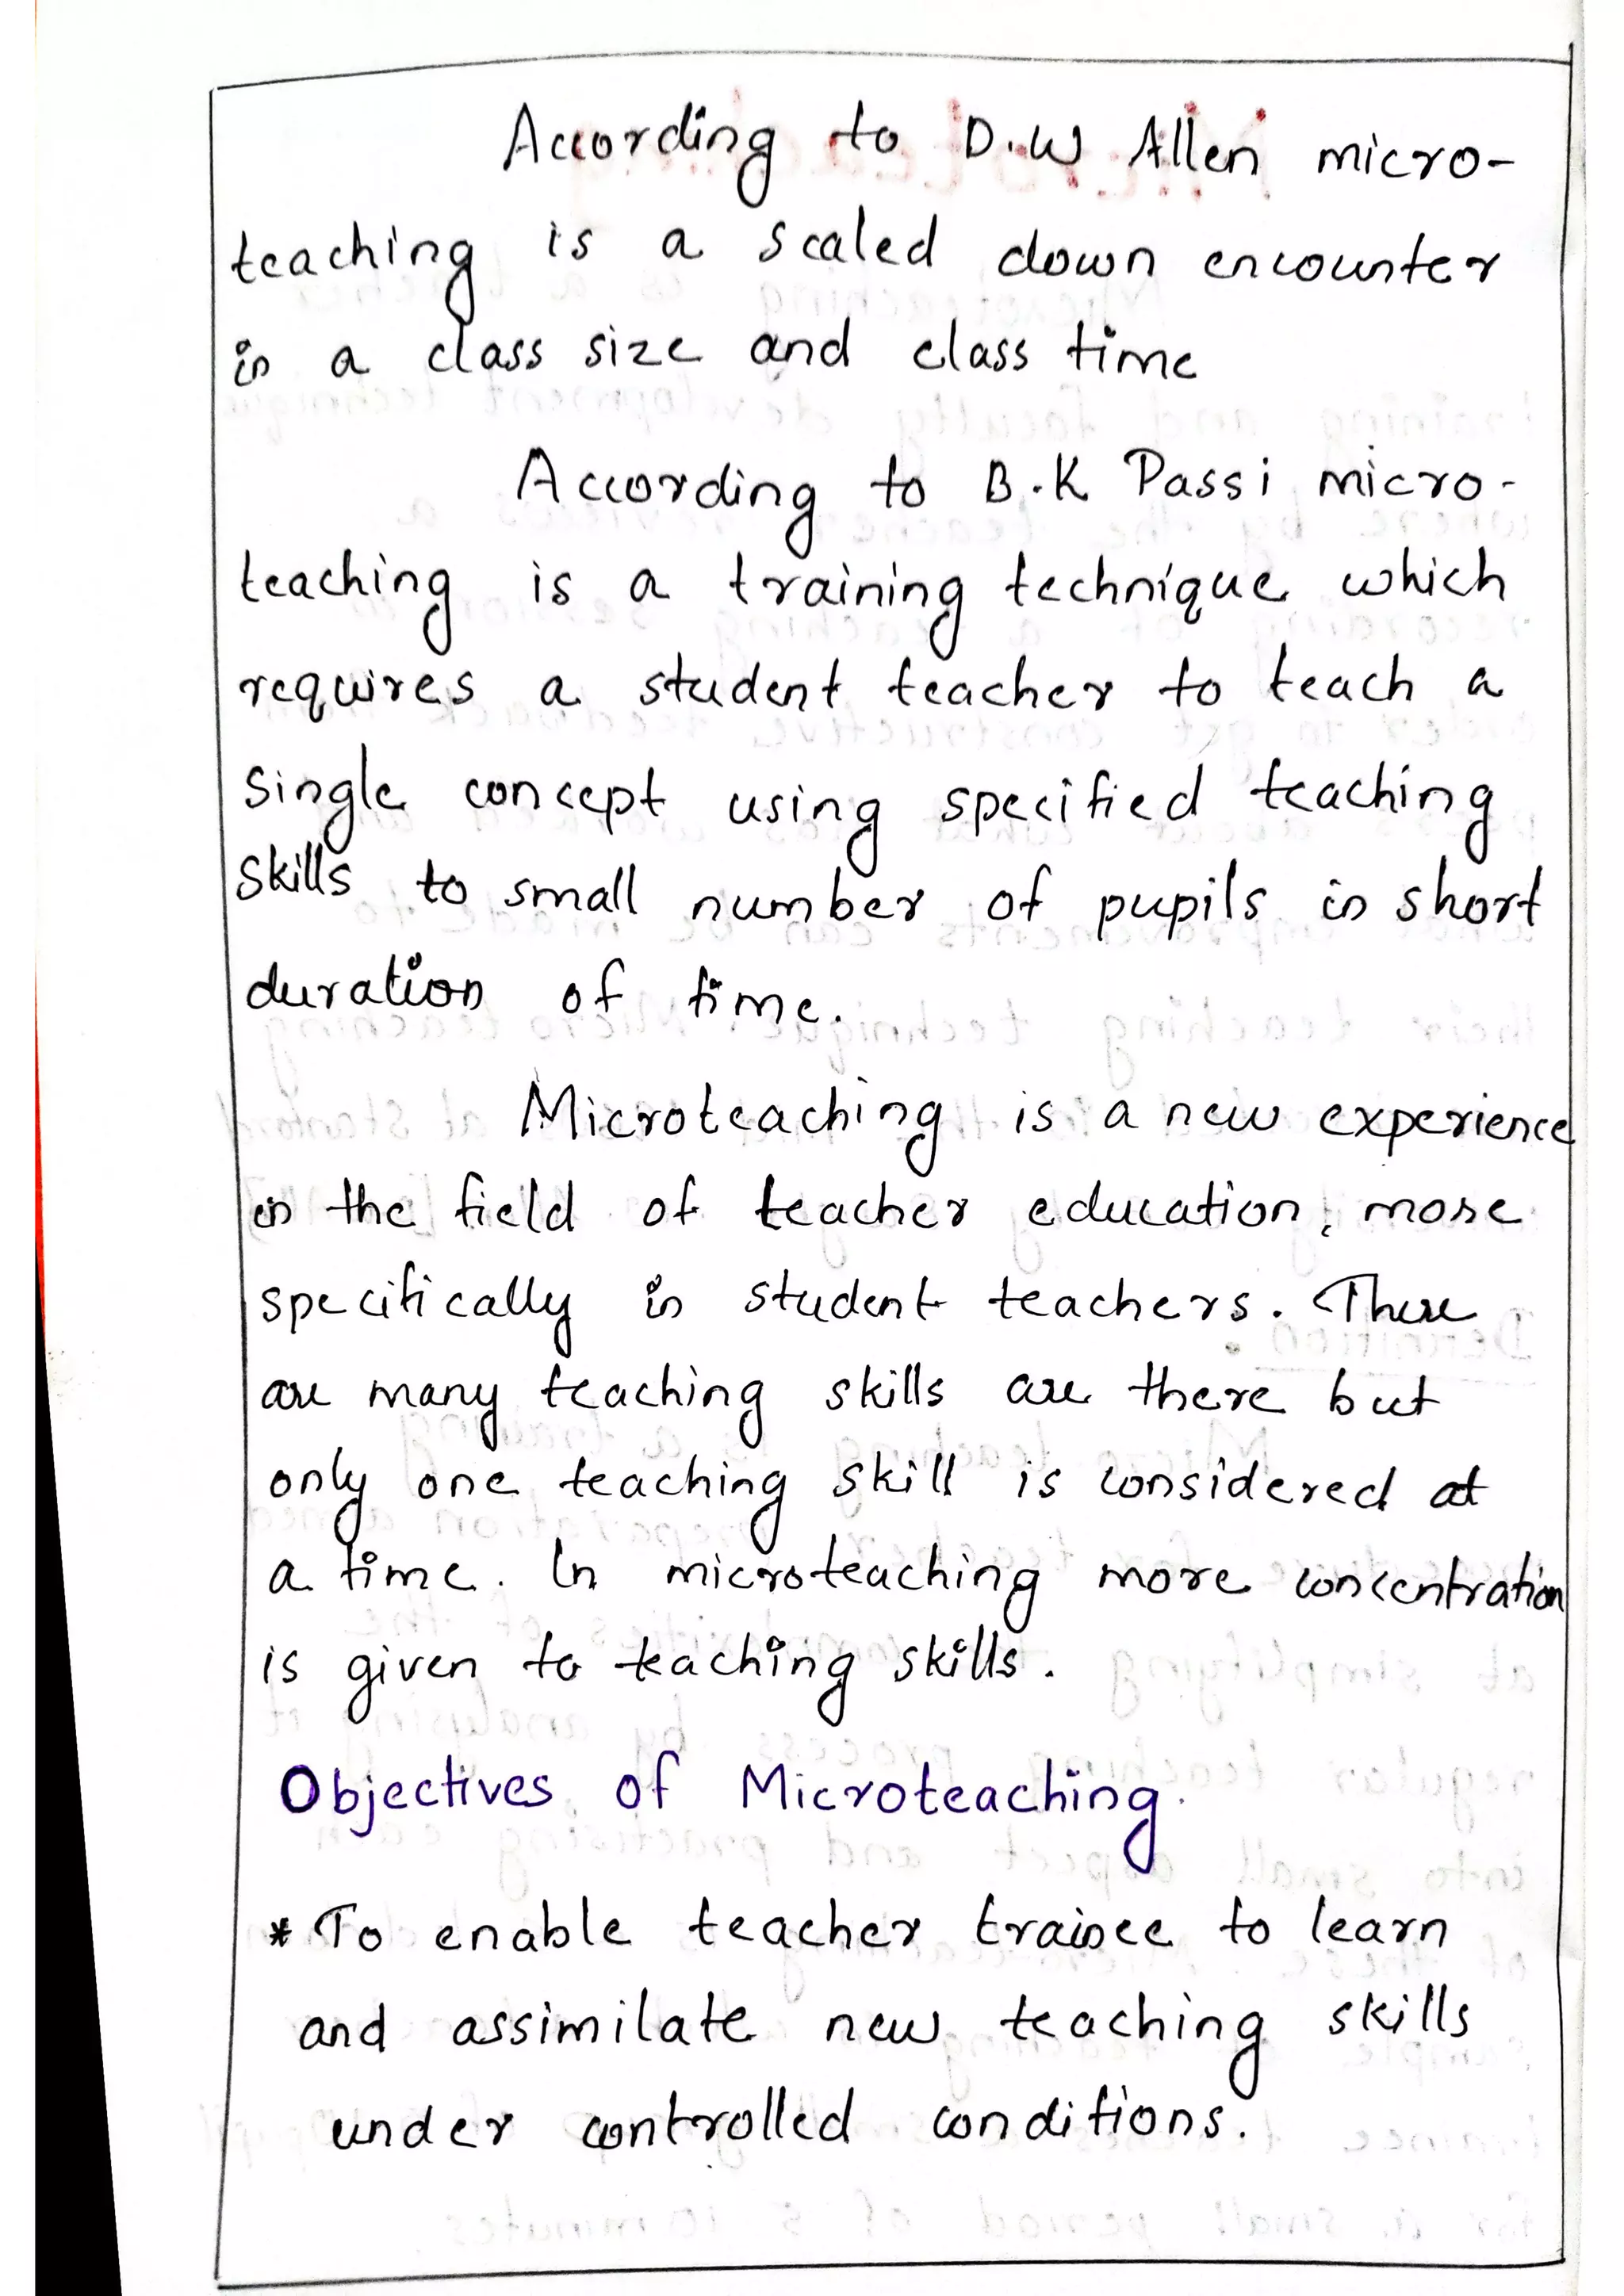 According to D.W Allen micro-
teaching is a scaled down encounter
in a class size and class time
According to B.K Passi micro-
teaching is a training technique which
requires a student teacher to teach a
single concept using specified teaching
skills to small number of pupils in short
duration of time.
Microteaching is a new experience
in the field of teacher education, more
specifically in student teachers. There
are many teaching skills are there but
only one teaching skill is considered at
a time. In microteaching more concentration
is given to teaching skills.
Objectives of Microteaching.
* To enable teacher trainee to learn
and assimilate new teaching skills
under controlled conditions.